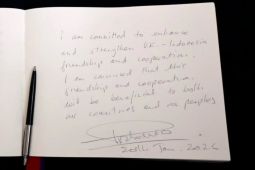 I am committed to enhance
and strengthen UK-Indonesia
friendship and cooperation.
I am convinced that this
friendship and cooperation
will be beneficial to both
our countries and our peoples
20th Jan. 2026